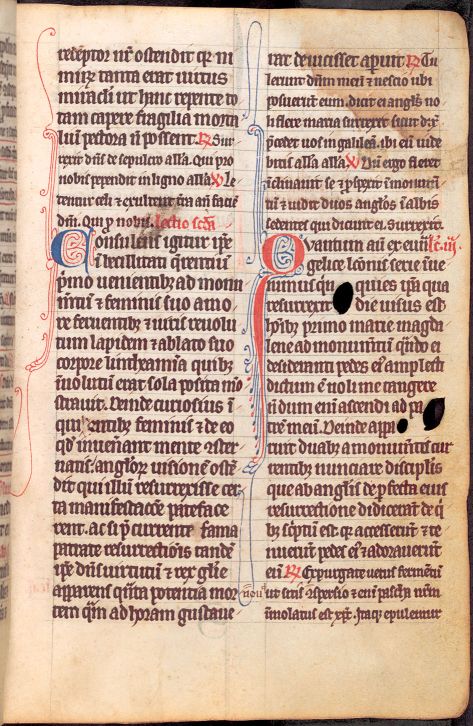 redeptor nr̄ ostendit qꝛ ni
miuꝫ tanta erat virtus
miraculi ut hanc repente to
tam capere fragilia morta
lium pectora nō possent. ℟ Sur
rexit dn̄s de sepulcro alla. Qui pro
nobis pependit in ligno alla. ℣ Le
tentur celi et exultet an̄ faciē
dn̄i. Qui p̄ nobis. lectio scd̄a
Consulens igitur ip̄e
inbecillitati q̄rentiū
p̄mo venientibꝫ ad monu
mentū et feminis suo amo
re ferventibꝫ et viris revolu
tum lapidem et ablato suo
corpore lintheamina quibꝫ
īvolutū erat sola posita mō
stravit. Deinde curiosius ī
quirentibꝫ feminis et de eo
qd̄ invenerant mente ꝯster
natis angeloꝝ visionē ostē
dit qui illum resurrexisse cer
ta manifestacōe pateface
rent. ac si p̄currente fama
patrate resurrectiōis tandē
ip̄e dn̄s virtutū et rex glīe
apparens qūta potentia mor
tem q̄m ad horam gustave
rat devicisset aperuit. ℟ Tu
lerunt dn̄m meū et nescio ubi
posuerunt eum. dicit ei angl̄s no
li flere maria surrexit sicut dix̄
p̄cedet vos in galileā. ibi eū vide
bitis alla alla ℣ Dū ergo fleret
īclinavit se et ꝓspexit ī monum̄
tū et vidit duos angl̄os ī albis
sedentes qui dicunt ei. Surrexit.
Quantum an̄ ex euā lc̄. iij.
gelice lc̄onis serie īve
nimus qua quies ip̄a qua
resurrexit die visus est
hoībꝫ primo marie magda
lene ad monumentū qn̄do ei
desideranti pedes eiꝰ amplecti
dictum ē noli me tangere
nōdum enī ascendi ad pa
trē meū. Deinde appa
ruit duabꝫ a monumentis cur
rentibꝫ nunciare discip̄lis
que ab angl̄is de ꝑfecta eius
resurrectione didicerāt de qi
bꝫ sc̄ptū est qꝛ accesserunt et te
nuerūt pedes eiꝰ et adoraverūt
eū ℟ Expurgate vetus fermētū
nov̄ ut sitis ꝯspersio et enī pascha nr̄m
īmolatus est xp̄c. Itaqꝫ epulemur